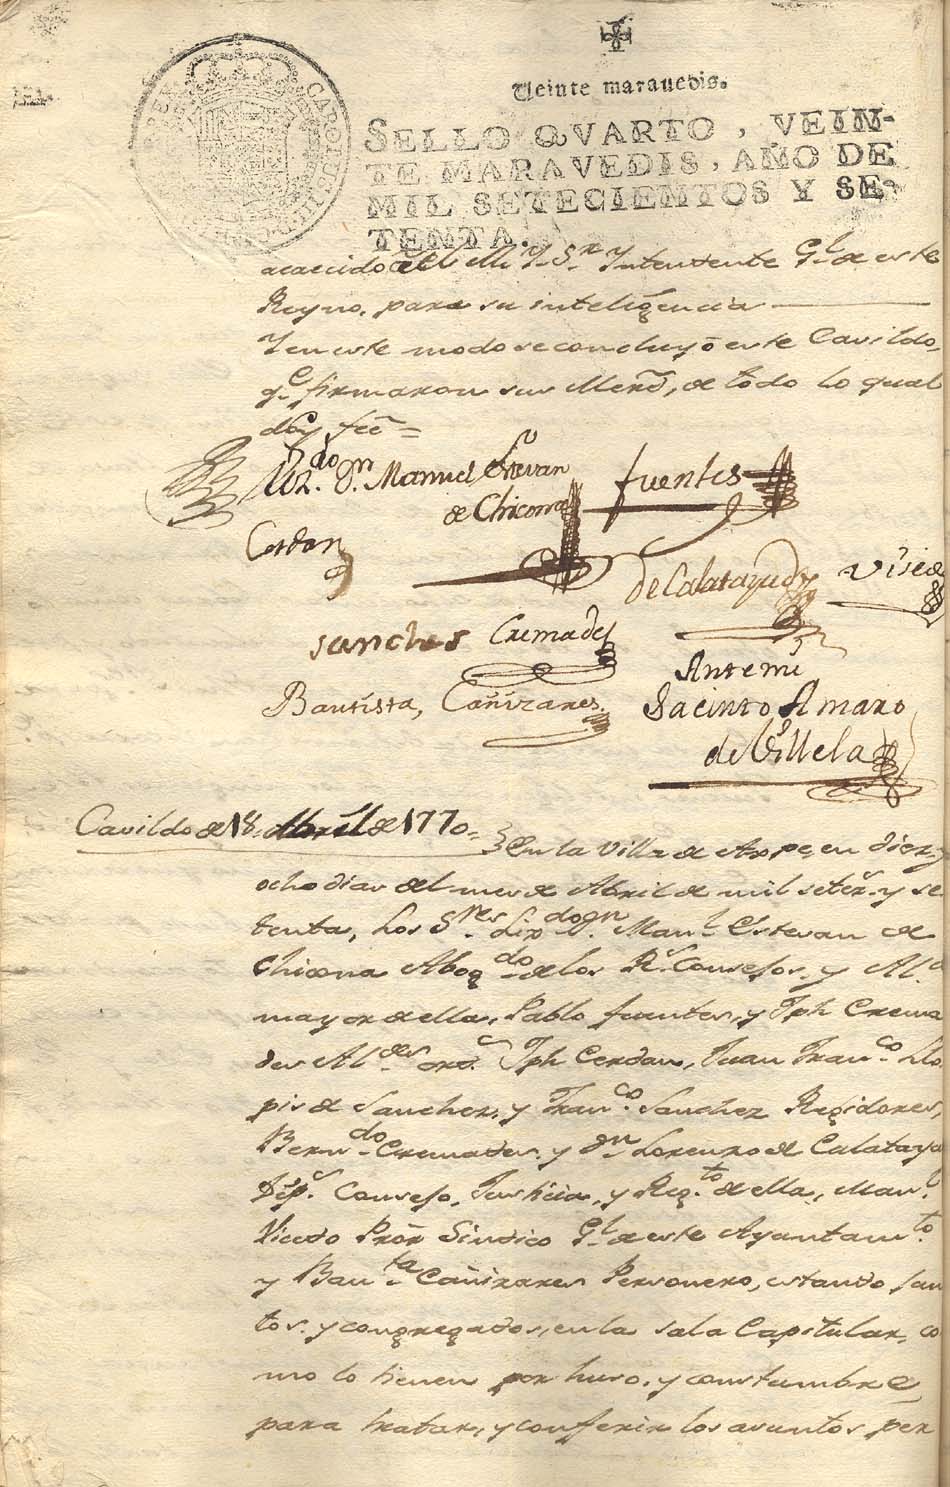 Veinte maravedis.
SELLO QVARTO, VEIN-
TE MARAVEDIS, AÑO DE
MIL SETECIENTOS Y SE-
TENTA.
CAROLUS III D
acaecido al M. Y. Sr. Yntendente Gl. de este
Reyno, para su inteligencia
Y en este modo se concluyó este Cavildo,
qe. firmaron sus Merds, de todo lo qual
doy feé =
Liz.do Dn. Manuel Estevan
de Chicona
fuentes
Cerdan
de Calatayud
Visedo
Sanches
Cremades
Bautista, Cañizares
Antemi
Jacinto Amaro
de Villela
Cavildo de 18. Abril de 1770.
En la Villa de Aspe, en diez, y
ocho dias del mes de Abril de mil seter. y se
tenta, los Sres. Lizdo. Dn. Manl. Estevan de
Chicona Abogdo. de los Rs. Consejos, y Ale
mayor de ella, Pablo fuentes, y Jph Crema
des Aldes. ords. Jph Cerdan, Juan Franco. Llo
pis de Sanchez, y Franco. Sanchez Regidores,
Berndo. Cremades, y Dn. Lorenzo de Calatayd
Dip.s Consejo, Justicia, y Regto. de ella, Manl.
Vicedo Pror Sindico Gl. de este Ayuntamto.
y Bauta. Cañizares Personero, estando jun
tos, y congregados, en la sala Capitular, co
mo lo tienen por huso, y constumbre
para tratar, y conferir los asuntos per